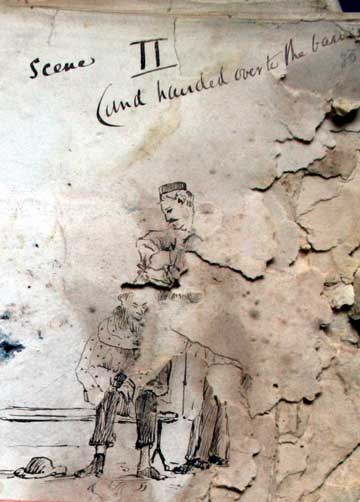 Scene II
(and handed over to the